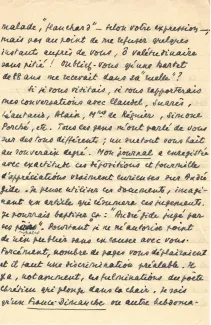 malade, "Hanchard". Selon votre expression,
mais pas au point de me refuser quelques
instants auprès de vous, ô valétudinaire
sans pitié! Oubliez-vous qu'une
de 88 ans me recevait dans sa "ruelle"?
Si je vous visitais, je vous rapporterais
mes conversations avec Claudel, Suarès,
Léautaud, Alain, Mme de Régnier, Simone
Porché, etc. Tous ces gens m'ont parlé de vous
sur des tons différents; un surtout vous hait
de touchante façon. Mon journal a enregistré
avec exactitude ces dispositions et fourmille
d'appréciations vraiment curieuses sur André
Gide. Je peux utiliser ces documents,
un article qui résumera ces jugements.
Je pourrais baptiser ça: André Gide jugé par
ses pairs. Pourtant je ne m'autorise point
de rien publier sans en causer avec vous.
Forcément, nombre de pages vous déplairaient
et il faut une discrimination préalable. Il
y a, notamment, les fulminations du poète
chrétien qui plongent dans la chair. Je sais
qu'un France-Dimanche ou autre hebdoma-